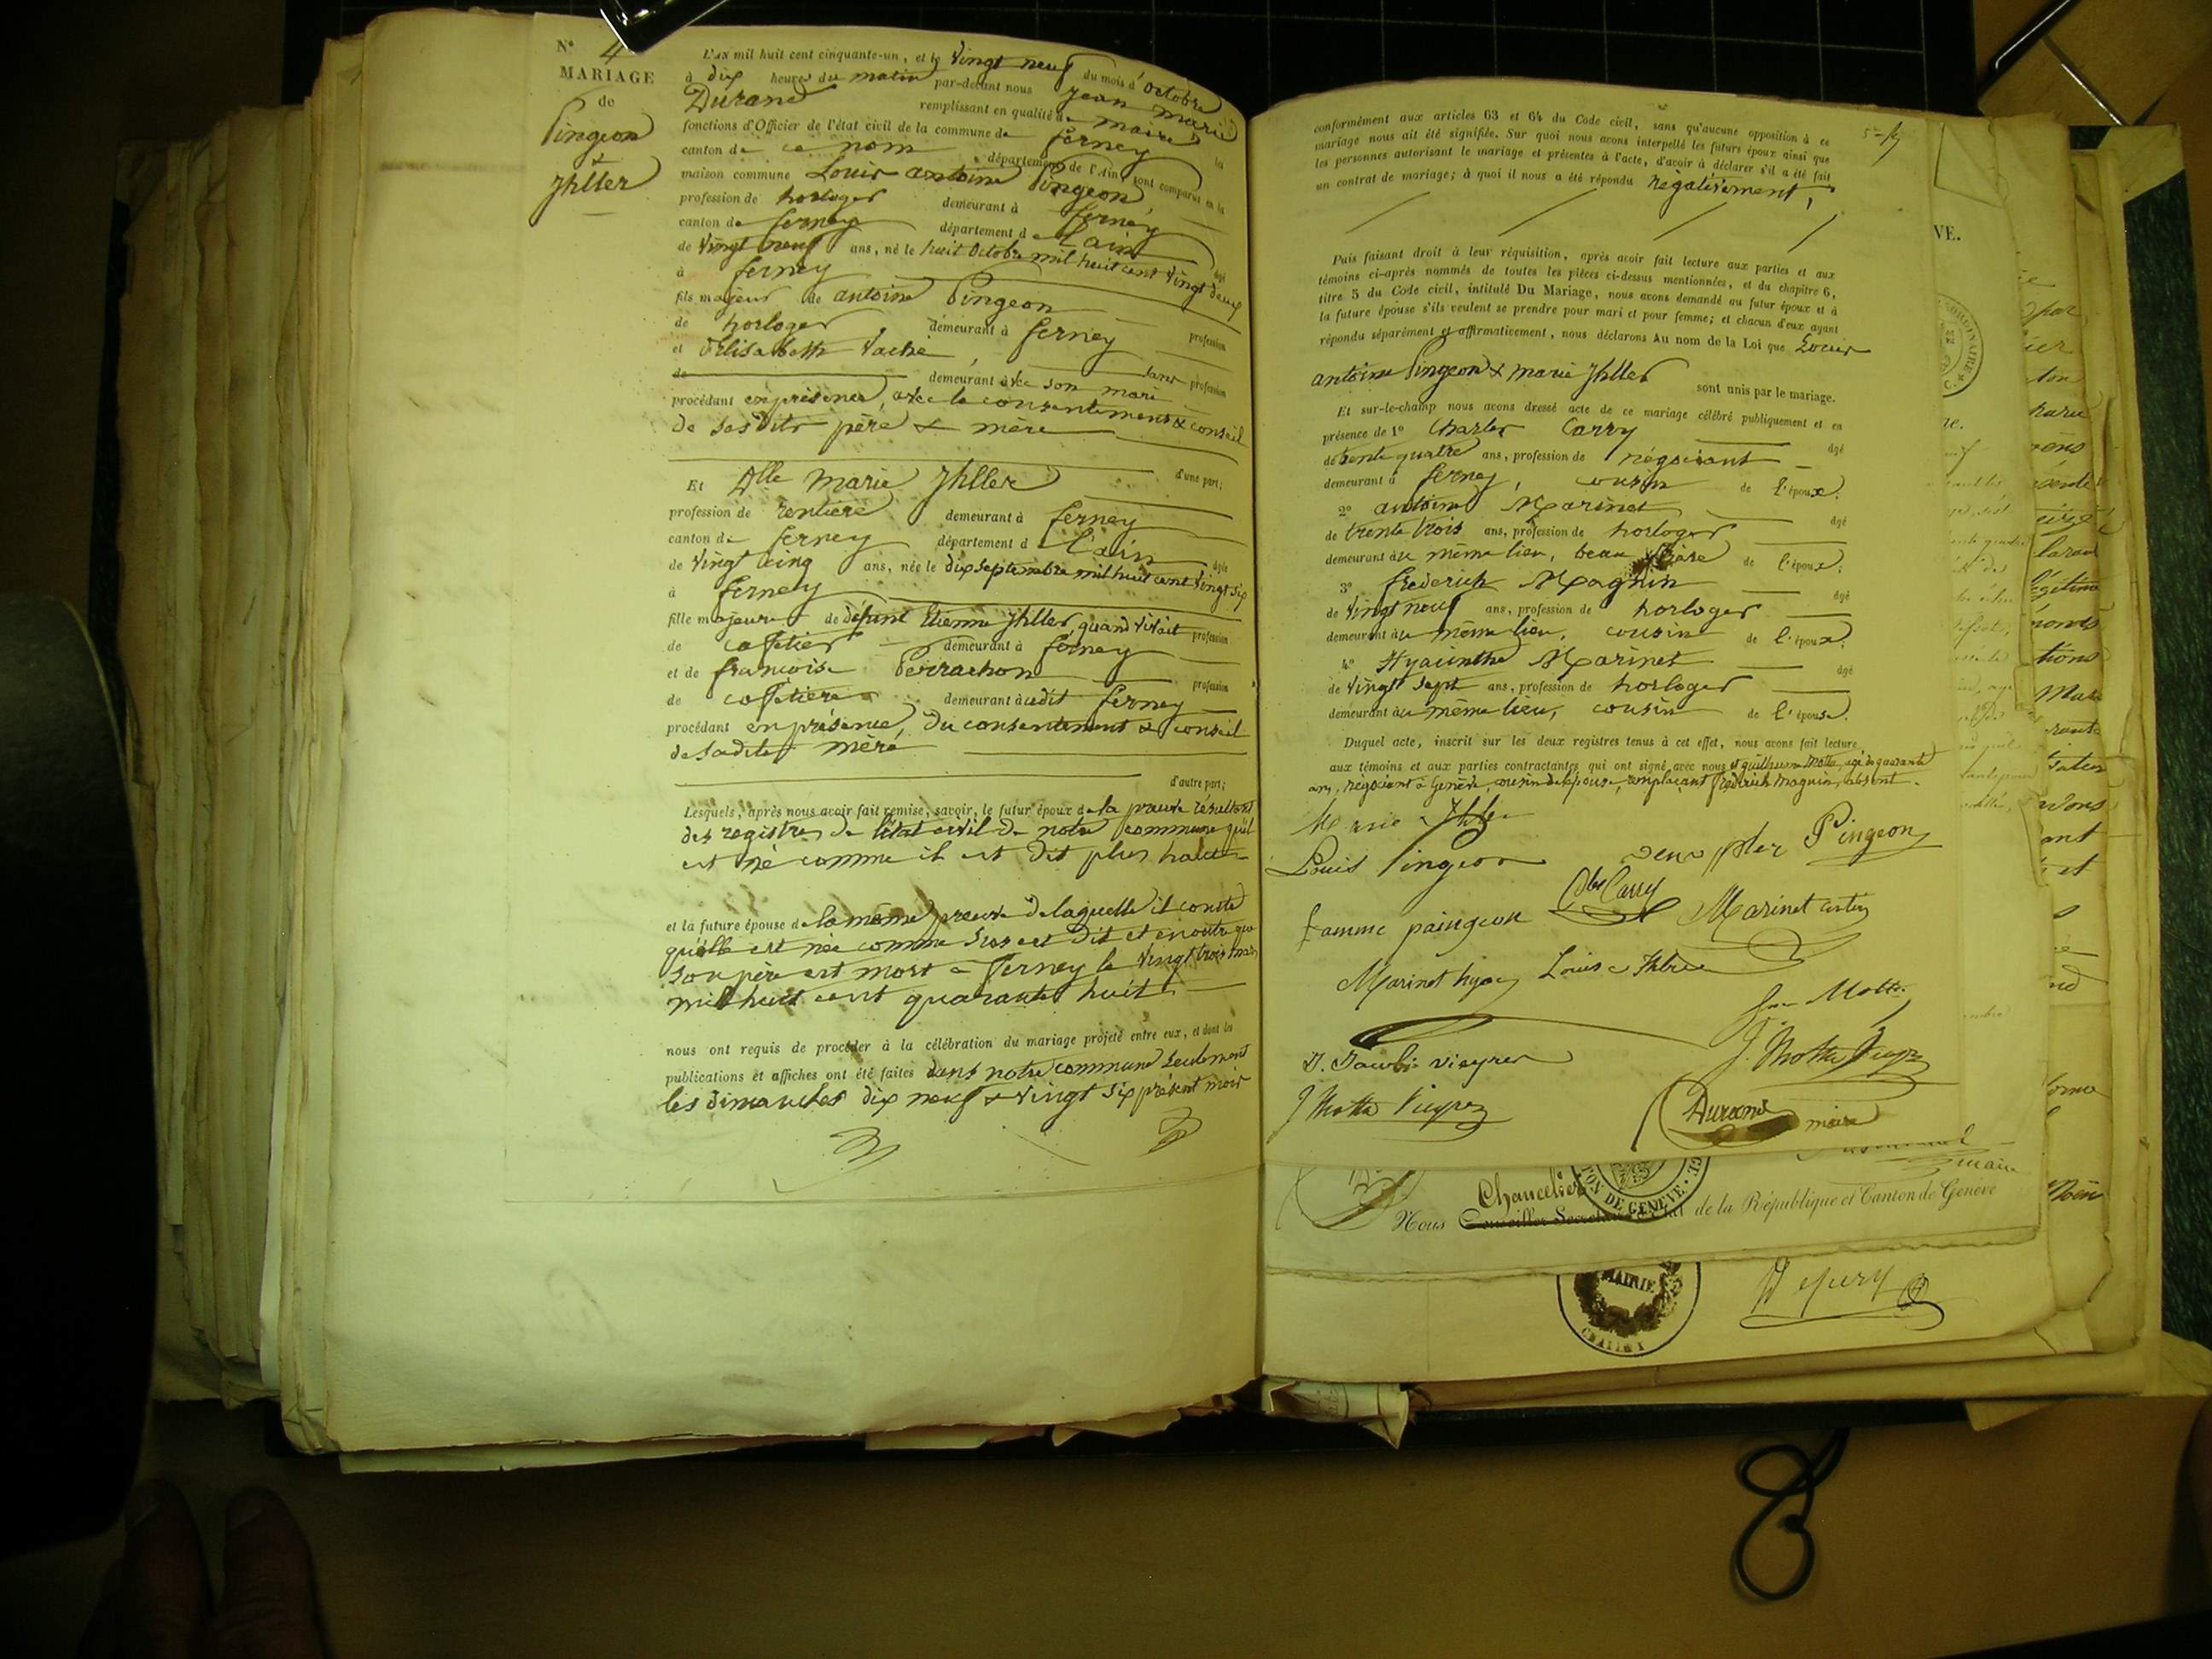 N° 4
MARIAGE
de
Pingeon
&
Jhller
L'an mil huit cent cinquante-un, et le Vingt neuf du mois d'Octobre
à dix heures du matin par-devant nous Jean Marie
Durand remplissant en qualité de maire les
fonctions d'Officier de l'état civil de la commune de ferney
canton de ce nom département de l'Ain sont comparus en la
maison commune Louis antoine Pingeon,
profession de horloger demeurant à ferney
canton de ferney département de l'ain âgé
de Vingt neuf ans, né le huit Octobre mil huit cent Vingt deux
à ferney
fils majeur de antoine Pingeon profession
de horloger demeurant à ferney
et Elisabeth Vaché, sans profession
de demeurant avec son mari
procédant en présence, avec le consentement & conseil
de ses dits père & mère
d'une part;
Et Dlle Marie Jhller
profession de rentière demeurant à ferney
canton de ferney département d l'ain âgée
de Vingt cinq ans, née le dix septembre mil huit cent Vingt six
à ferney
fille majeure de défunt Etienne Jhller, quand vivait profession
de cafetier demeurant à ferney
et de françoise Perrachon profession
de cafetière demeurant àudit ferney
procédant en présence, du consentement & conseil
de sadite mère
d'autre part;
Lesquels, après nous avoir fait remise, savoir, le futur époux de la preuve résultant
des registres de l'état civil de notre commune qu'il
est né comme il est dit plus haut
et la future épouse de la même preuve de laquelle il conste
qu'elle est née comme sus est dit et en outre que
son père est mort à Ferney le Vingt trois mai
mil huit cent quarante huit
nous ont requis de procéder à la célébration du mariage projeté entre eux, et dont les
publications et affiches ont été faites dans notre commune seulement
les dimanches dix neuf & vingt six présent mois
conformément aux articles 63 et 64 du Code civil, sans qu'aucune opposition à ce
mariage nous ait été signifiée. Sur quoi nous avons interpellé les futurs époux ainsi que
les personnes autorisant le mariage et présentes à l'acte, d'avoir à déclarer s'il a été fait
un contrat de mariage; à quoi il nous a été répondu négativement,
Puis faisant droit à leur réquisition, après avoir fait lecture aux parties et aux
témoins ci-après nommés de toutes les pièces ci-dessus mentionnées, et du chapitre 6,
titre 5 du Code civil, intitulé Du Mariage, nous avons demandé au futur époux et à
la future épouse s'ils veulent se prendre pour mari et pour femme; et chacun d'eux ayant
répondu séparément et affirmativement, nous déclarons Au nom de la Loi que Louis
antoine Pingeon & marie Jhller sont unis par le mariage.
Et sur-le-champ nous avons dressé acte de ce mariage célébré publiquement et en
présence de 1° Charles Carry âgé
de trente quatre ans, profession de négociant
demeurant à ferney, cousin de l'époux.
2° antoine Marinet âgé
de trente trois ans, profession de horloger
demeurant au même lieu, beau frère de l'époux;
3° frederick Magnin âgé
de Vingt neuf ans, profession de horloger
demeurant au même lieu, cousin de l'époux.
4° Hyacinthe Marinet âgé
de Vingt sept ans, profession de horloger
demeurant au même lieu, cousin de l'épouse.
Duquel acte, inscrit sur les deux registres tenus à cet effet, nous avons fait lecture
aux témoins et aux parties contractantes qui ont signé avec nous et guillaume Motta, agé de quarante
ans, négociant à Genève, cousin de l'épouse, remplacant frederick Magnin, absent.
Marie Jhller
Louis Pingeon
Pingeon
femme paingeon
Chs Carry
Marinet
Marinet hya
Louise
Motta
J. Jacobi vieyrer
J. Motta
J Motta
Durand maire
maire
Chancelier
Nous Conseiller Secrétaire d'Etat de la République et Canton de Genève
CANTON DE GENEVE
MAIRIE
CHALLEX
VE.